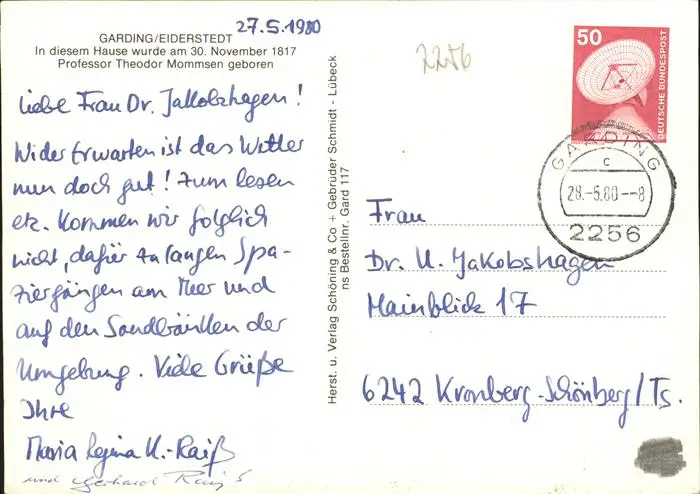 27.5.1980
GARDING/EIDERSTEDT
In diesem Hause wurde am 30. November 1817
Professor Theodor Mommsen geboren
Liebe Frau Dr. Jakobshagen!
Wider Erwarten ist das Wetter
nun doch gut! Zum lesen
etc. kommen wir folglich
nicht, dafür zu langen Spa-
ziergängen am Meer und
auf den Sandbänken der
Umgebung. Viele Grüße
Ihre
Maria Regina K.-Raiß
und Gerhard Raiß
Herst. u. Verlag Schöning & Co + Gebrüder Schmidt - Lübeck
ns Bestellnr. Gard 117
2256
50
DEUTSCHE BUNDESPOST
GARDING
c
28.-5.80--8
2256
Frau
Dr. U. Jakobshagen
Mainblick 17
6242 Kronberg-Schönberg/Ts.